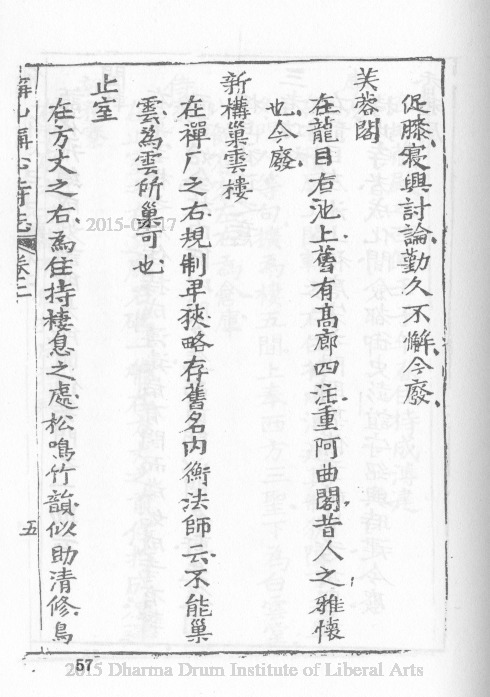 促膝寢興討論勤久不懈今廢
芙蓉閣
在龍目右池上舊有高廊四注重阿曲閣昔人之雅懷
也今廢
新構巢雲樓
在禪厂之右規制卑狹略存舊名內衡法師云不能巢
雲爲雲所巢可也
止室
在方丈之右爲住持棲息之處松鳴竹韻似助清修鳥
稱心寺志 卷二
五
2015-07-17
57
2015 Dharma Drum Institute of Liberal Arts